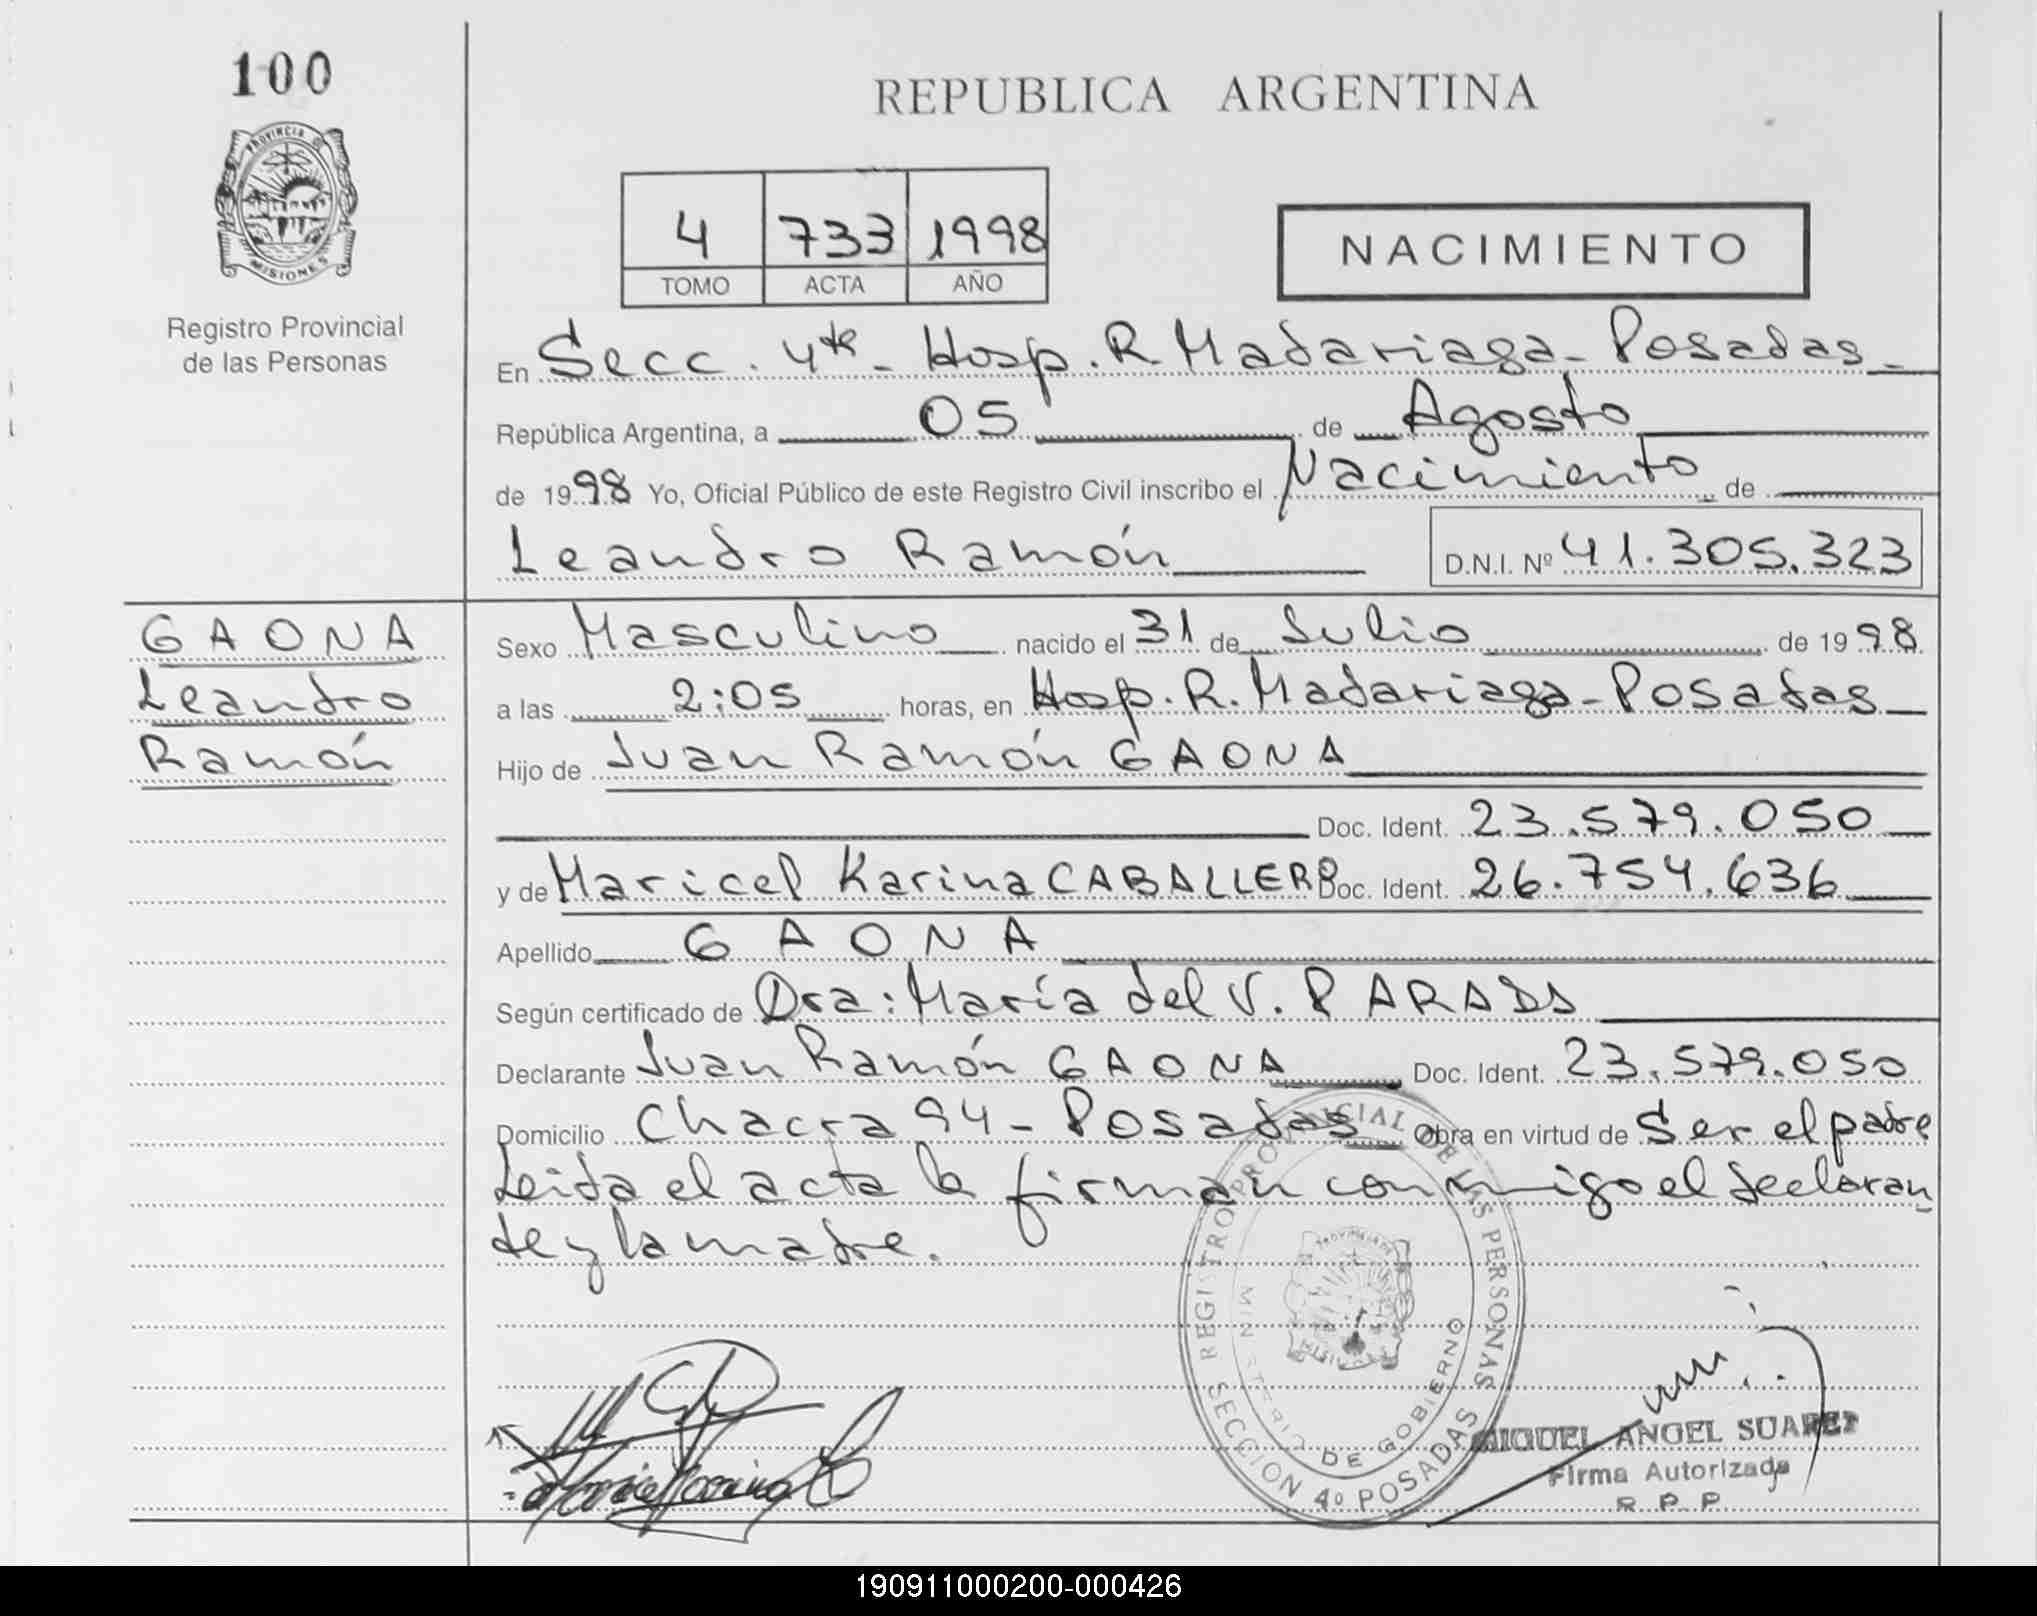 100
PROVINCIA
MISIONES
Registro Provincial
de las Personas
REPUBLICA ARGENTINA
4 733 1998
TOMO ACTA AÑO
NACIMIENTO
En Secc. 4ta - Hosp. R. Madariaga - Posadas
República Argentina, a 05 de Agosto
de 1998 Yo, Oficial Público de este Registro Civil inscribo el Nacimiento de
Leandro Ramón D.N.I. Nº 41.305.323
GAONA
Leandro
Ramón
Sexo Masculino nacido el 31 de Julio de 1998
a las 2:05 horas, en Hosp. R. Madariaga - Posadas
Hijo de Juan Ramón GAONA
Doc. Ident. 23.579.050
y de Maricel Karina CABALLERO Doc. Ident. 26.754.636
Apellido GAONA
Según certificado de Dra: María del V. PARADA
Declarante Juan Ramón GAONA Doc. Ident. 23.579.050
Domicilio Chacra 94 - Posadas Obra en virtud de Ser el padre
Leida el acta la firman conmigo el declaran
te y la madre.
REGISTRO PROVINCIAL DE LAS PERSONAS
MINISTERIO DE GOBIERNO
SECCION 4º POSADAS
MIGUEL ANGEL SUAREZ
Firma Autorizada
R. P. P.
190911000200-000426